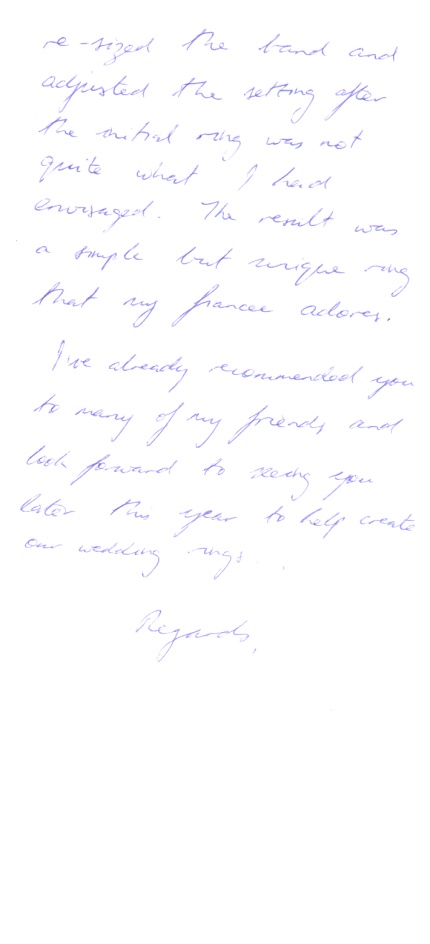 re-sized the band and
adjusted the setting after
the initial ring was not
quite what I had
envisaged. The result was
a simple but unique ring
that my fiancee adores.
I've already recommended you
to many of my friends and
look forward to seeing you
later this year to help create
our wedding rings.
Regards,